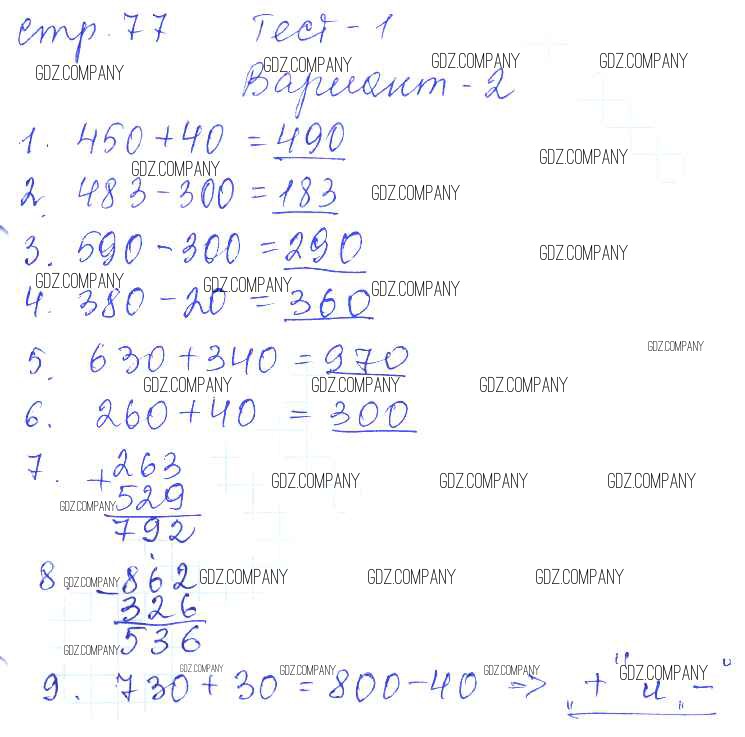 стр. 77 Тест - 1
GDZ.COMPANY GDZ.COMPANY GDZ.COMPANY GDZ.COMPANY
Вариант - 2
1. 450 + 40 = 490
GDZ.COMPANY GDZ.COMPANY
2. 483 - 300 = 183 GDZ.COMPANY
3. 590 - 300 = 290 GDZ.COMPANY
GDZ.COMPANY GDZ.COMPANY GDZ.COMPANY
4. 380 - 20 = 360
5. 630 + 340 = 970 GDZ.COMPANY
GDZ.COMPANY GDZ.COMPANY GDZ.COMPANY
6. 260 + 40 = 300
7. + 263
GDZ.COMPANY GDZ.COMPANY GDZ.COMPANY
GDZ.COMPANY 529
792
8. GDZ.COMPANY - 862 GDZ.COMPANY GDZ.COMPANY GDZ.COMPANY
326
GDZ.COMPANY 536
GDZ.COMPANY GDZ.COMPANY GDZ.COMPANY GDZ.COMPANY
9. 730 + 30 = 800 - 40 => „+" и „-"